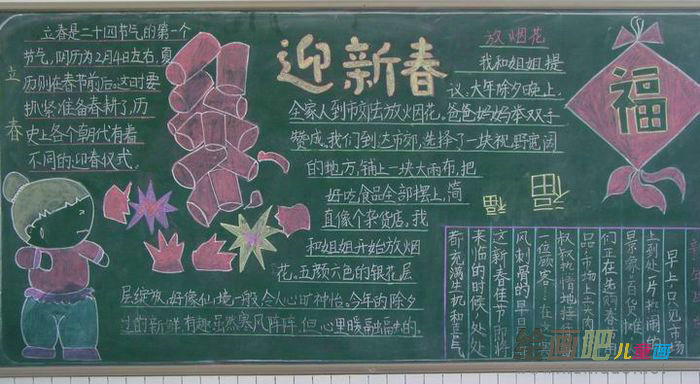 立春
立春是二十四节气的第一个
节气,阴历为2月4日左右,夏
历则在春节前后。这时要
抓紧准备春耕了,历
史上各个朝代有着
不同的迎春仪式。
迎新春
放烟花
我和姐姐提
议,大年除夕晚上,
全家人到市郊去放烟花。爸爸妈妈举双手
赞成。我们到达市郊,选择了一块视野宽阔
的地方,铺上一块大雨布,把
好吃食品全部摆上,简
直像个杂货店,我
和姐姐开始放烟
花。五颜六色的银花层
层绽放,好像仙境一般,令人心旷神怡。今年的除夕
过的新鲜有趣,虽然寒风阵阵,但心里暖融融的。
福
福
福
早上,只见市场
上到处一片热闹的
景象,百货摊
们正在选购春
品市场上,土大
叔叔热情地挂
一位顾客:在
风刺骨的早
这新春佳节即将
来临的时候,处处
都充满生机和喜气
绘画吧
儿童画